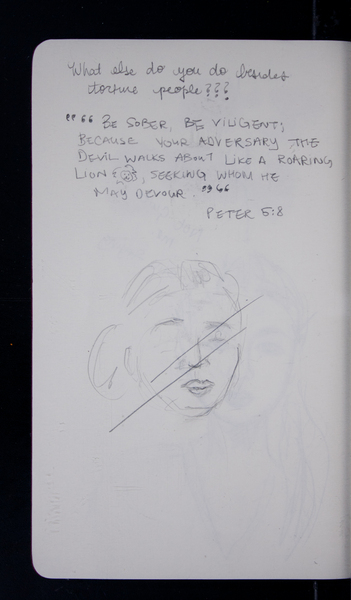 What else do you do besides
torture people???
"" BE SOBER, BE VILIGENT;
BECAUSE YOUR ADVERSARY THE
DEVIL WALKS ABOUT LIKE A ROARING
LION , SEEKING WHOM HE
MAY DEVOUR. ""
PETER 5:8